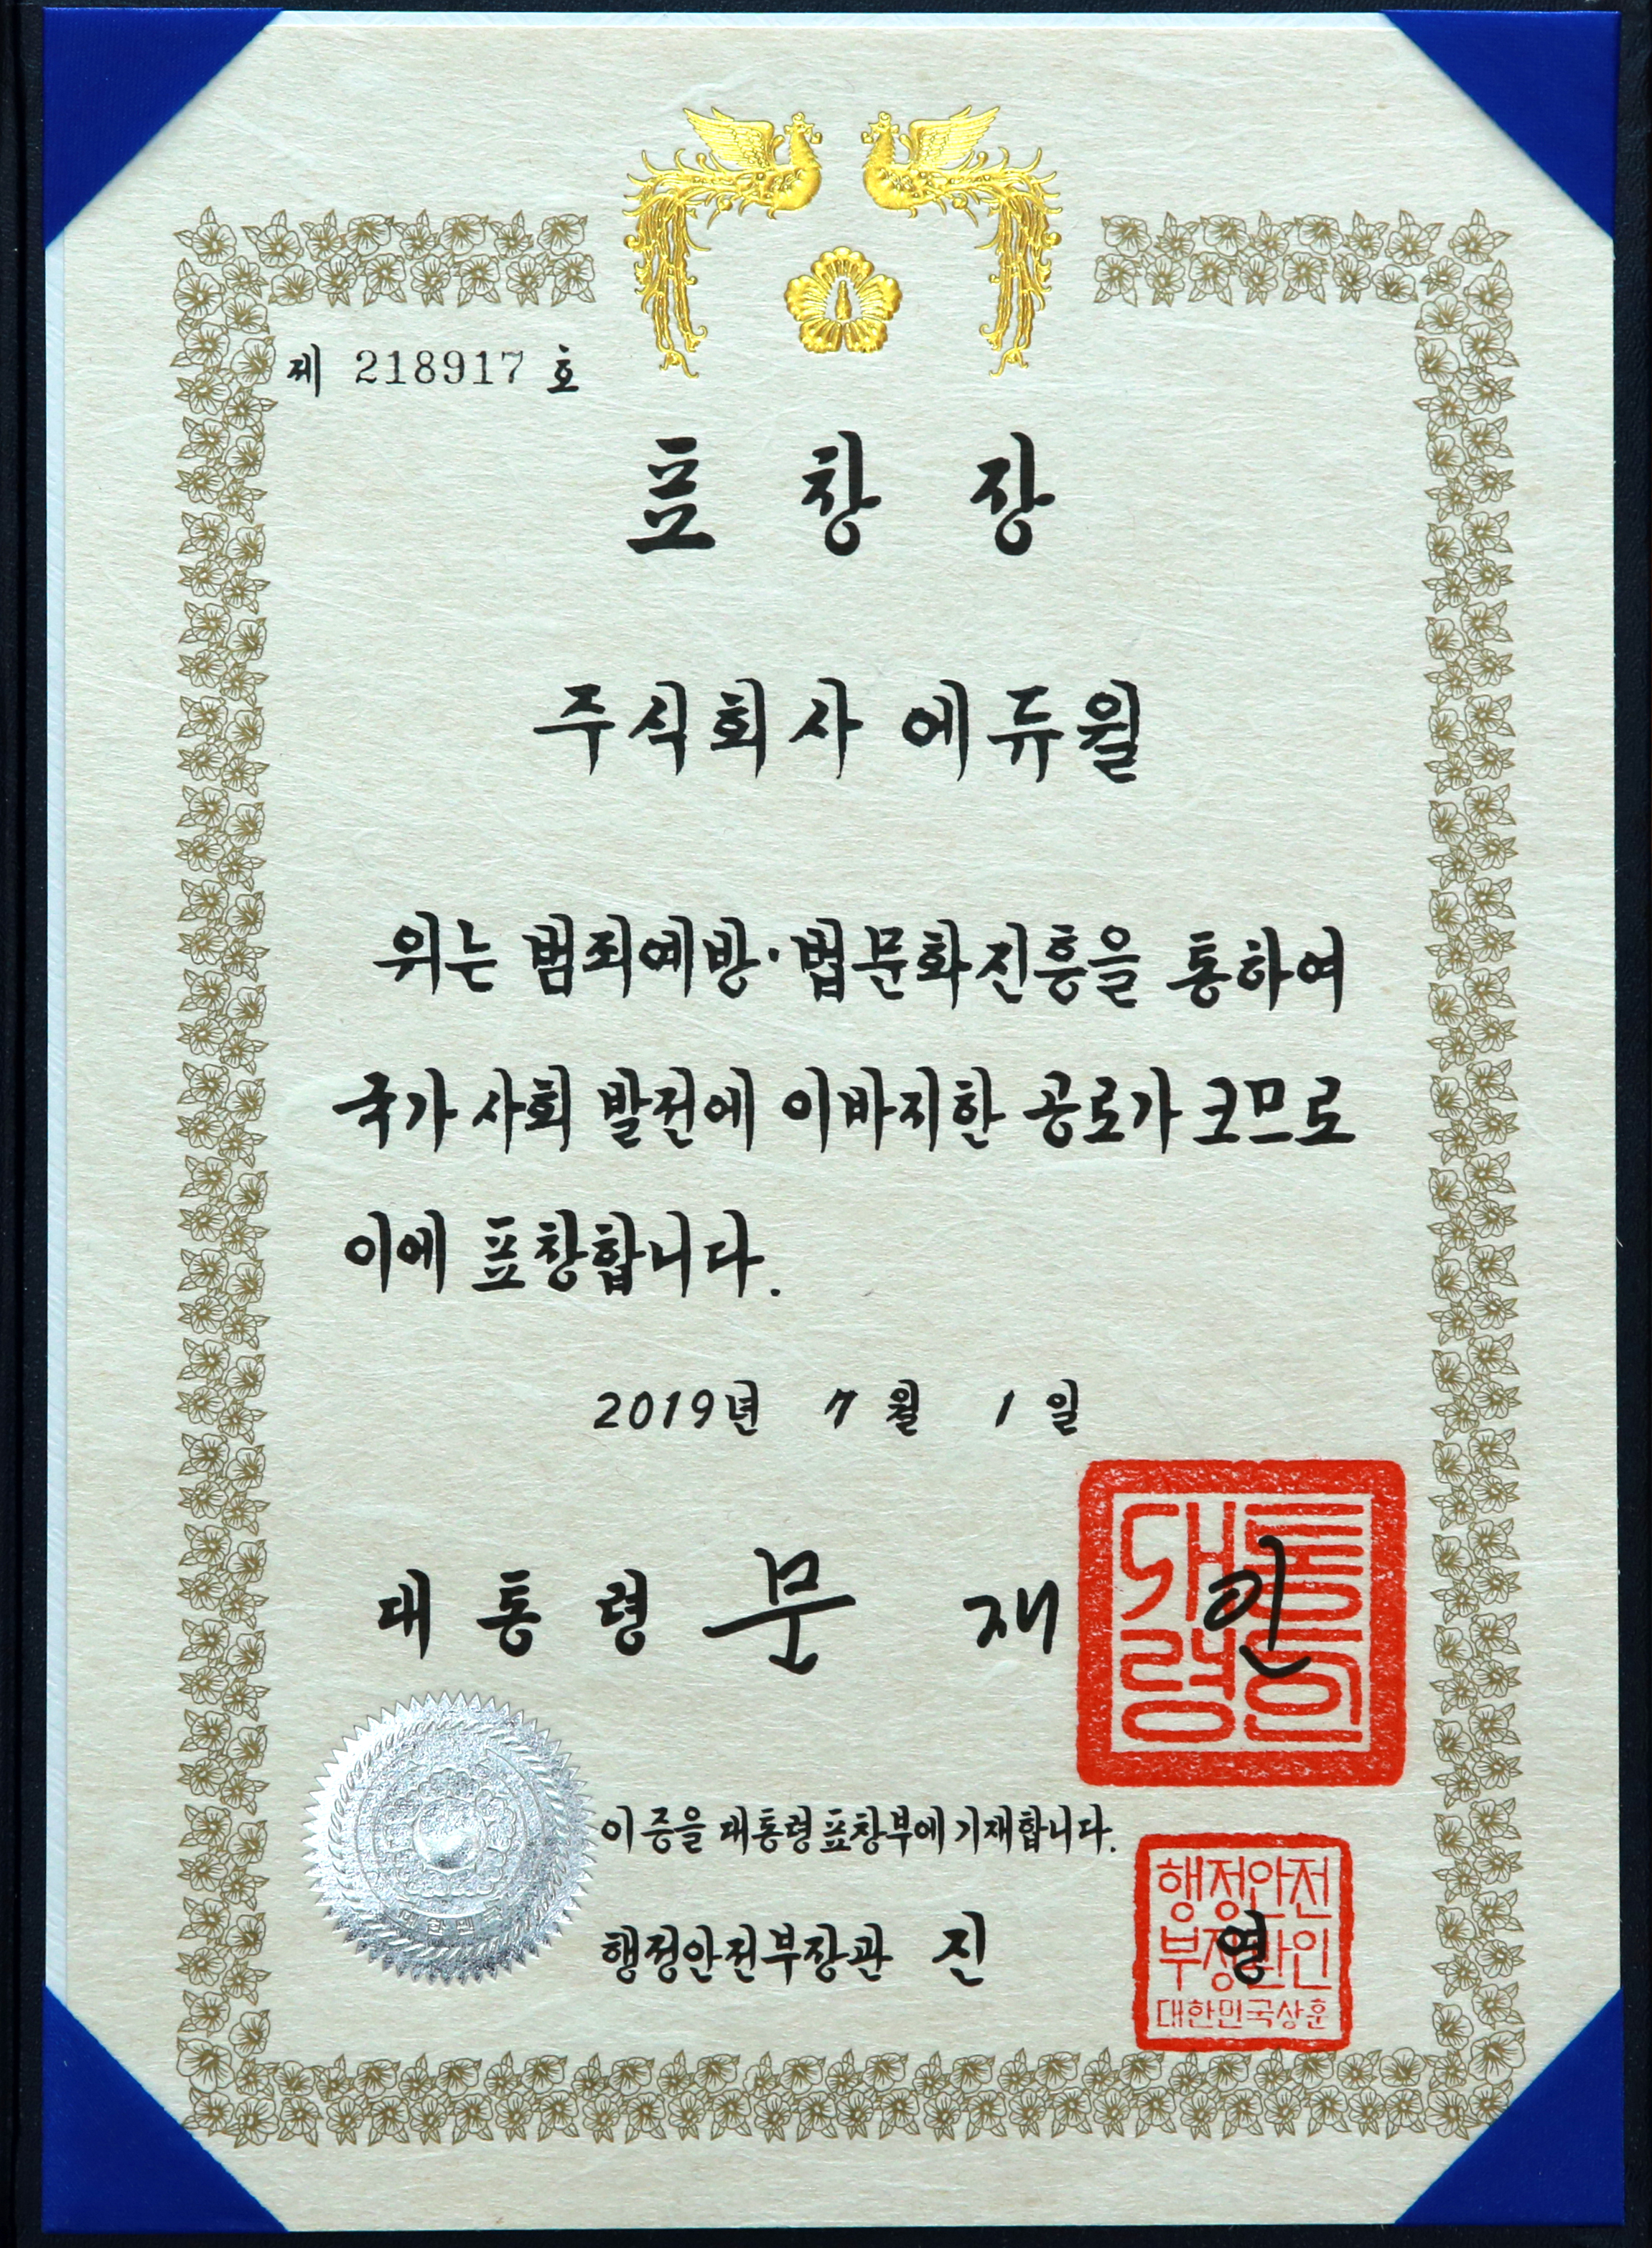 제 218917 호
표 창 장
주식회사 에듀윌
위는 범죄예방·법문화진흥을 통하여
국가 사회 발전에 이바지한 공로가 크므로
이에 표창합니다.
2019년 7 월 1 일
대 통 령 문 재 인
대통
령인
이 증을 대통령표창부에 기재합니다.
행정안전부장관 진 영
행정안전
부장관인
대한민국상훈
대한민국